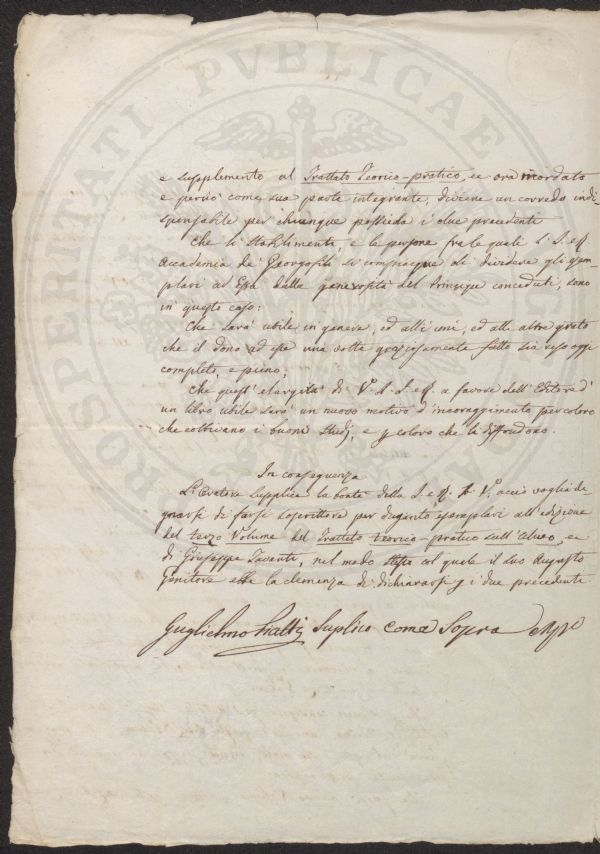 PROSPERITATI PVBLICAE
e supplemento al Trattato Teorico-pratico, ec ora ricordato
e perciò come sua parte integrante, diviene un corredo indi-
spensabile per chiunque possieda i due precedenti
Che li Stabilimenti, e le persone fra le quale l'I. e R.
Accademia de' Georgofili si compiacque di dividere gli esem-
plari ad Essa dalla generosità del Principe conceduti, sono
in questo caso:
Che sarà utile in genere, ed alli uni, ed alle altre grato
che il dono ad esse una volta graziosamente fatto sia reso oggi
completo, e pieno;
Che quest' elargità di V. A. I. e R. a favore dell'Editore d'
un libro utile sarà un nuovo motivo d'incoraggimento per coloro
che coltivano i buoni Studj, e p coloro che li diffondono.
In conseguenza
L'Oratore supplica la bontà della I. e R. A. V. acciò voglia de-
gnarsi di farsi soscrittore per dugento esemplari all'edizione
del terzo Volume del Trattato teorico-pratico sull'Ulivo, ec
di Giuseppe Tavanti, nel modo stesso col quale il suo Augusto
Genitore ebbe la clemenza di dichiararsi p i due precedenti.
Guglielmo Piatti Suplico come Sopra